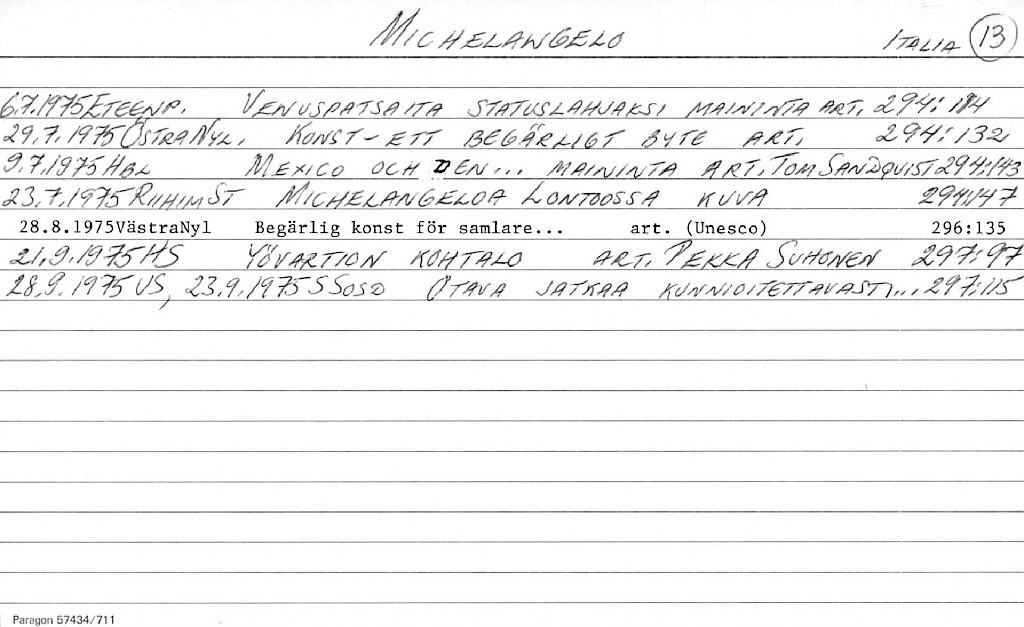 MICHELANGELO ITALIA 13
6.7.1975 ETEENP. VENUSPATSAITA STATUSLAHJAKSI MAININTA ART. 294:184
29.7.1975 ÖSTRANYL. KONST-ETT BEGÄRLIGT BYTE ART. 294:132
9.7.1975 HBL MEXICO OCH DEN... MAININTA ART. TOM SANDQVIST 294:143
23.7.1975 RIIHIMST MICHELANGELOA LONTOOSSA KUVA 294:147
28.8.1975VästraNyl Begärlig konst för samlare... art. (Unesco) 296:135
21.9.1975 HS YÖVARTION KOHTALO ART. PEKKA SUHONEN 297:97
28.9.1975 US, 23.9.1975 SSOSD OTAVA JATKAA KUNNIOITETTAVASTI... 297:115
Paragon 57434/711